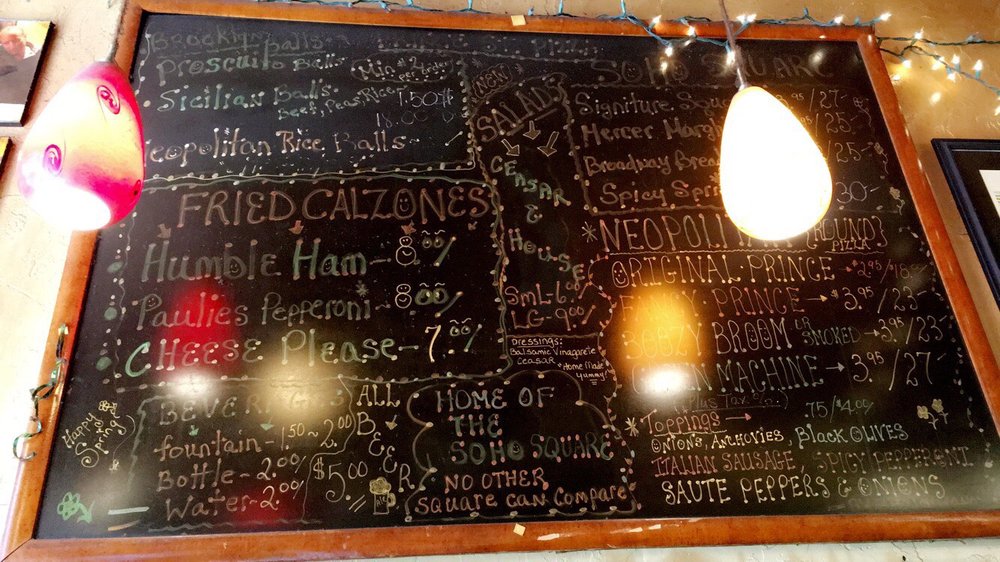 Brooklyn Balls
Proscuito Balls
Min #2
per order
Sicilian Balls-
Beef, Peas, Rice
1.50
Neopolitan Rice Balls
FRIED CALZONES
Humble Ham - 8.00/
Paulies Pepperoni - 8.00/
CHEESE Please - 7.00/
Happy
Spring
BEVERAGES
fountain - 1.50 - 2.00
Bottle - 2.00/
Water - 2.00/
ALL
BEER
$5.00
NEW
SALADS
CEASAR
&
HOUSE
SmL - 6.00/
LG - 9.00/
Dressings:
Balsamic Vinagarete
Ceasar
*Home Made
yummy!
HOME OF
THE
SOHO SQUARE
NO OTHER
Square can Compare
SOHO SQUARE
Signiture 27-
Mercer 25-
Broadway 25-
Spicy 30-
*NEOPOLITAN {ROUND}
PIZZA
ORIGINAL PRINCE → $2.95/
PRINCE → $3.95/23-
BOOZY BROOM OR SMOKED → 3.95/23-
MACHINE → 3.95/27
(Plus Tax)
*Toppings → .75/$4.00
ONIONS, ANCHOVIES, BLACK OLIVES
ITALIAN SAUSAGE, SPICY PEPPERONI
SAUTE PEPPERS & ONIONS